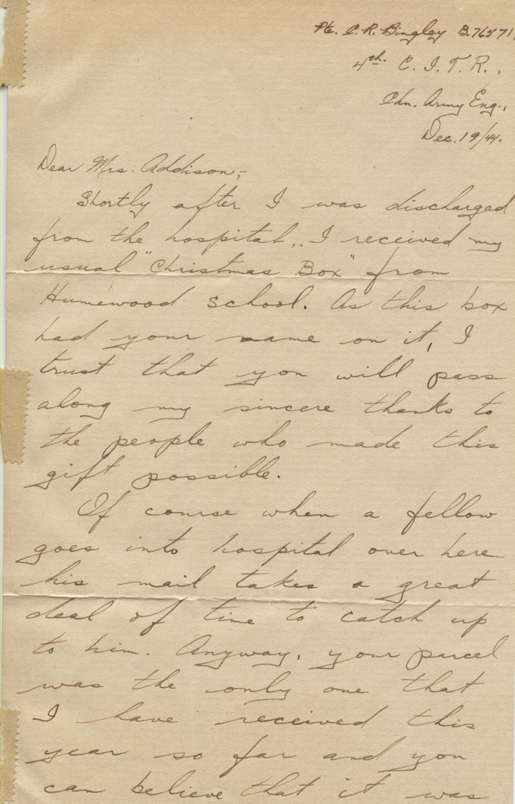 Pte. C. R. Bingley B.76571
4th C. I. T. R.,
Cdn. Army Eng.,
Dec. 19/44.
Dear Mrs. Addison;-
Shortly after I was discharged
from the hospital, I received my
usual "Christmas Box" from
Humewood School. As this box
had your name on it, I
trust that you will pass
along my sincere thanks to
the people who made this
gift possible.
Of course when a fellow
goes into hospital over here
his mail takes a great
deal of time to catch up
to him. Anyway, your parcel
was the only one that
I have received this
year so far and you
can believe that it was